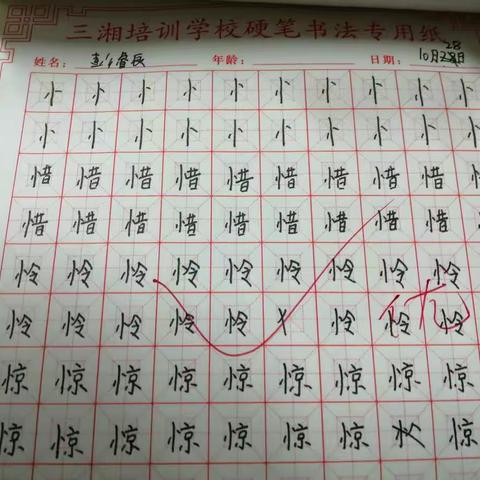 三湘培训学校硬笔书法专用纸
姓名： 年龄： 日期：10月28日
忄 忄 忄 忄 忄 忄 忄 忄 忄
忄 忄 忄 忄 忄 忄 忄 忄 忄
惜 惜 惜 惜 惜 惜 惜 惜 惜
惜 惜 惜 惜 惜 惜 惜 惜 惜
怜 怜 怜 怜 怜 怜 怜 怜 怜
怜 怜 怜 怜 怜 怜 怜 怜
惊 惊 惊 惊 惊 惊 惊 惊 惊
惊 惊 惊 惊 惊 惊 惊 惊